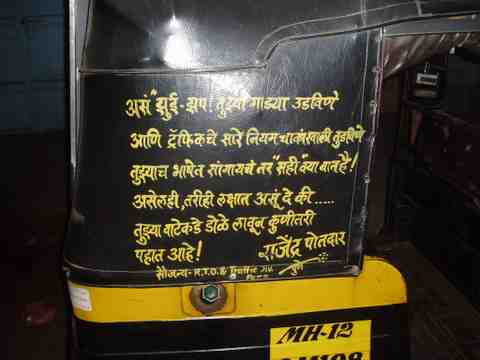 असं "झुई-झप! तुझ्या गाड्या उडविणे
आणि ट्रॅफिकचे सारे नियम चाकांखाली तुडविणे
तुझ्याच भाषेत सांगायचे तर "सही" क्या बात है!
असेलही, तरीही लक्षात असू दे की .....
तुझ्या वाटेकडे डोळे लावून कुणीतरी
पहात आहे! राजेंद्र पोतदार
सौजन्य- R.T.O. & Traffic पुणे
MH-12